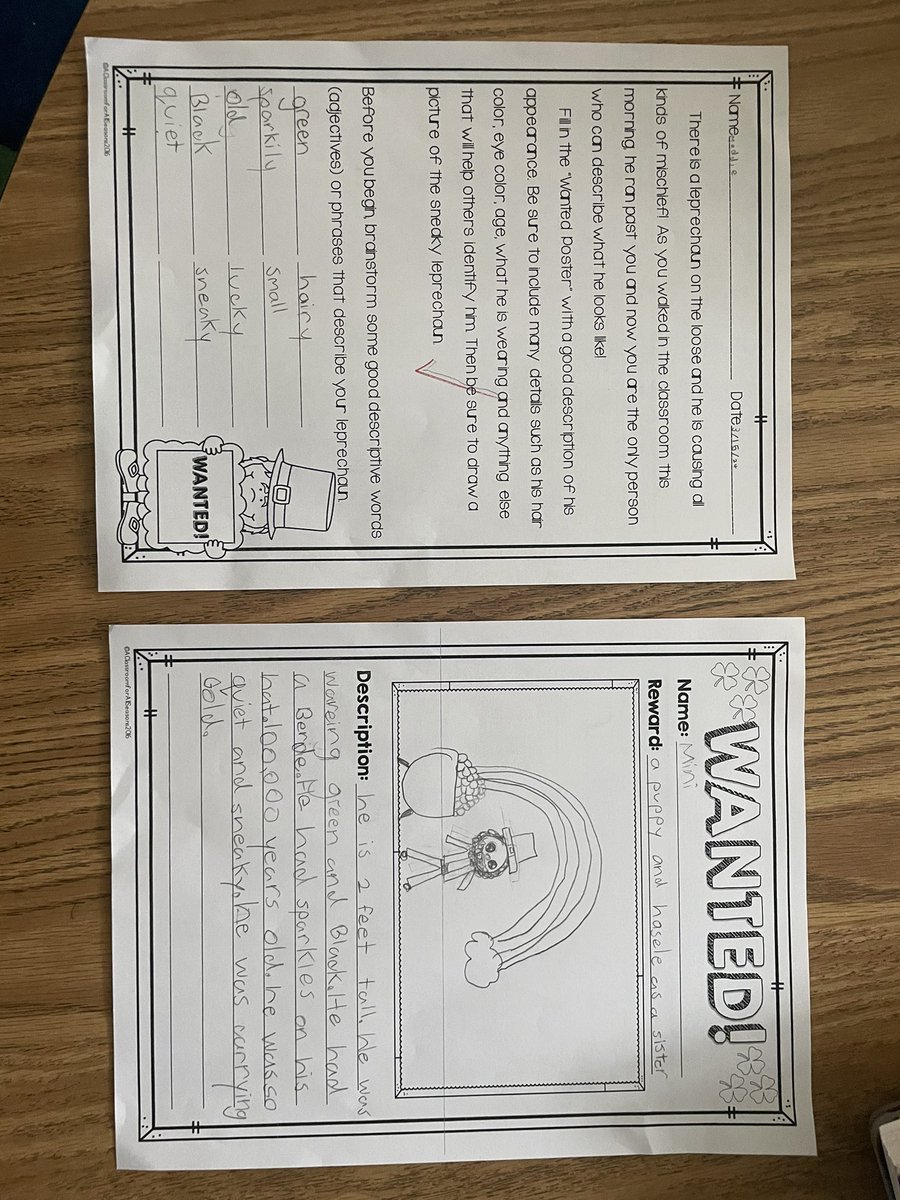 Name addie Date 3/15/24
There is a leprechaun on the loose and he is causing all
kinds of mischief! As you walked in the classroom this
morning, he ran past you and now you are the only person
who can describe what he looks like!
Fill in the "Wanted Poster" with a good description of his
appearance. Be sure to include many details such as his hair
color, eye color, age, what he is wearing and anything else
that will help others identify him. Then be sure to draw a
picture of the sneaky leprechaun.
Before you begin, brainstorm some good descriptive words
(adjectives) or phrases that describe your leprechaun.
green hairy
sparkily small
oldy lucky
Black sneaky
quiet
WANTED!
©AClassroomForAllSeasons2016
WANTED!
Name: Mini
Reward: a puppy and hasele as a sister
Description: he is 2 feet tall. He was
wareing green and Black. He had
a Berde. He had sparkles on his
hat. 100,000 years old. he was so
quiet and sneaky. He was carrying
Gold.
©AClassroomForAllSeasons2016